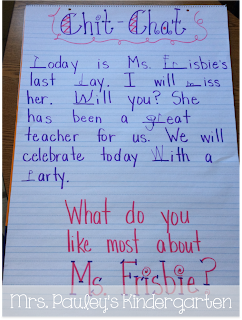 Chit-Chat
Today is Ms. Frisbie's
last day. I will miss
her. Will you? She
has been a great
teacher for us. We will
celebrate today With a
party.
What do you
like most about
Ms. Frisbie?
Mrs. Pauley's Kindergarten